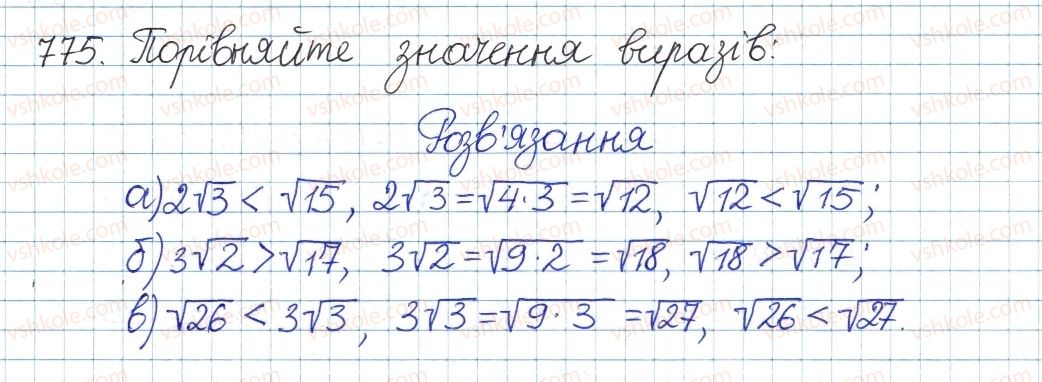 775. Порівняйте значення виразів:
Розв'язання
а) 2√3 < √15, 2√3 = √4·3 = √12, √12 < √15;
б) 3√2 > √17, 3√2 = √9·2 = √18, √18 > √17;
в) √26 < 3√3, 3√3 = √9·3 = √27, √26 < √27.